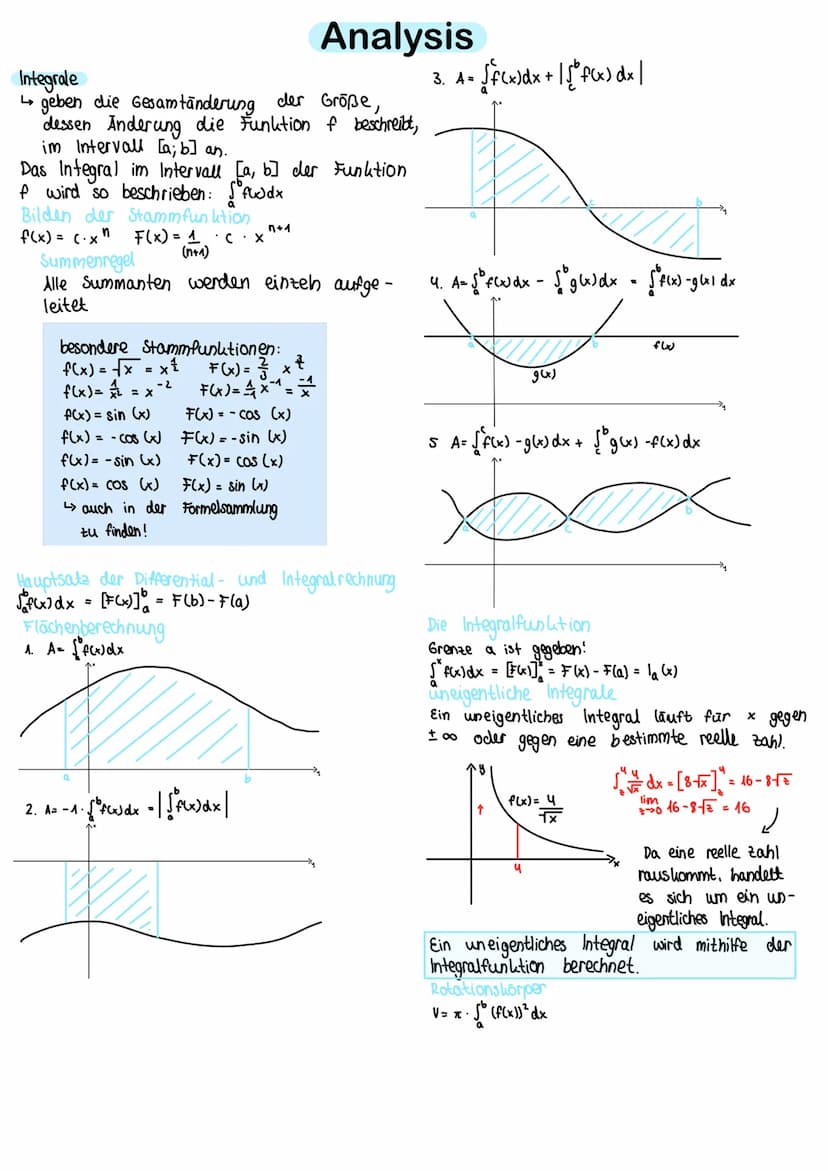 Analysis
Integrale
↳ geben die Gesamtänderung der Größe,
dessen Änderung die Funktion f beschreibt,
im Intervall [a;b] an.
Das Integral im Intervall [a, b] der Funktion
f wird so beschrieben: ∫ₐᵇ f(x)dx
Bilden der Stammfunktion
f(x) = c·xⁿ F(x) = 1/(n+1) · c · xⁿ⁺¹
Summenregel
Alle Summanten werden einzeln aufge-
leitet
besondere Stammfunktionen:
f(x) = √x = x^½ F(x) = 2/3 x^
f(x) = 1/x² = x⁻² F(x) = x⁻¹ = -1/x
f(x) = sin (x) F(x) = - cos (x)
f(x) = - cos (x) F(x) = - sin (x)
f(x) = - sin (x) F(x) = cos (x)
f(x) = cos (x) F(x) = sin (x)
↳ auch in der Formelsammlung
zu finden!
Hauptsatz der Differential- und Integralrechnung
∫ₐᵇ f(x)dx = [F(x)]ₐᵇ = F(b) - F(a)
Flächenberechnung
1. A = ∫ₐᵇ f(x)dx
a b
2. A = -1 · ∫ₐᵇ f(x)dx = |∫ₐᵇ f(x)dx|
3. A = ∫ₐᶜ f(x)dx + |∫_c^b f(x) dx|
a c b
4. A = ∫ₐᵇ f(x)dx - ∫ₐᵇ g(x)dx = ∫ₐᵇ f(x) - g(x) dx
a b f(x)
g(x)
5 A = ∫ₐᶜ f(x) - g(x) dx + ∫_c^b g(x) - f(x) dx
a c b
Die Integralfunktion
Grenze a ist gegeben!
∫ₐˣ f(x)dx = [F(x)]ₐˣ = F(x) - F(a) = Iₐ(x)
uneigentliche Integrale
Ein uneigentliches Integral läuft für x gegen
± ∞ oder gegen eine bestimmte reelle Zahl.
y
f(x) = 4/√x
↑
4
x
∫_z^4 4/√x dx = [8√x]_z^4 = 16 - 8√z
lim z→0 16 - 8√z = 16
Da eine reelle Zahl
rauskommt, handelt
es sich um ein un-
eigentliches Integral.
Ein uneigentliches Integral wird mithilfe der
Integralfunktion berechnet.
Rotationskörper
V = π · ∫ₐᵇ (f(x))² dx